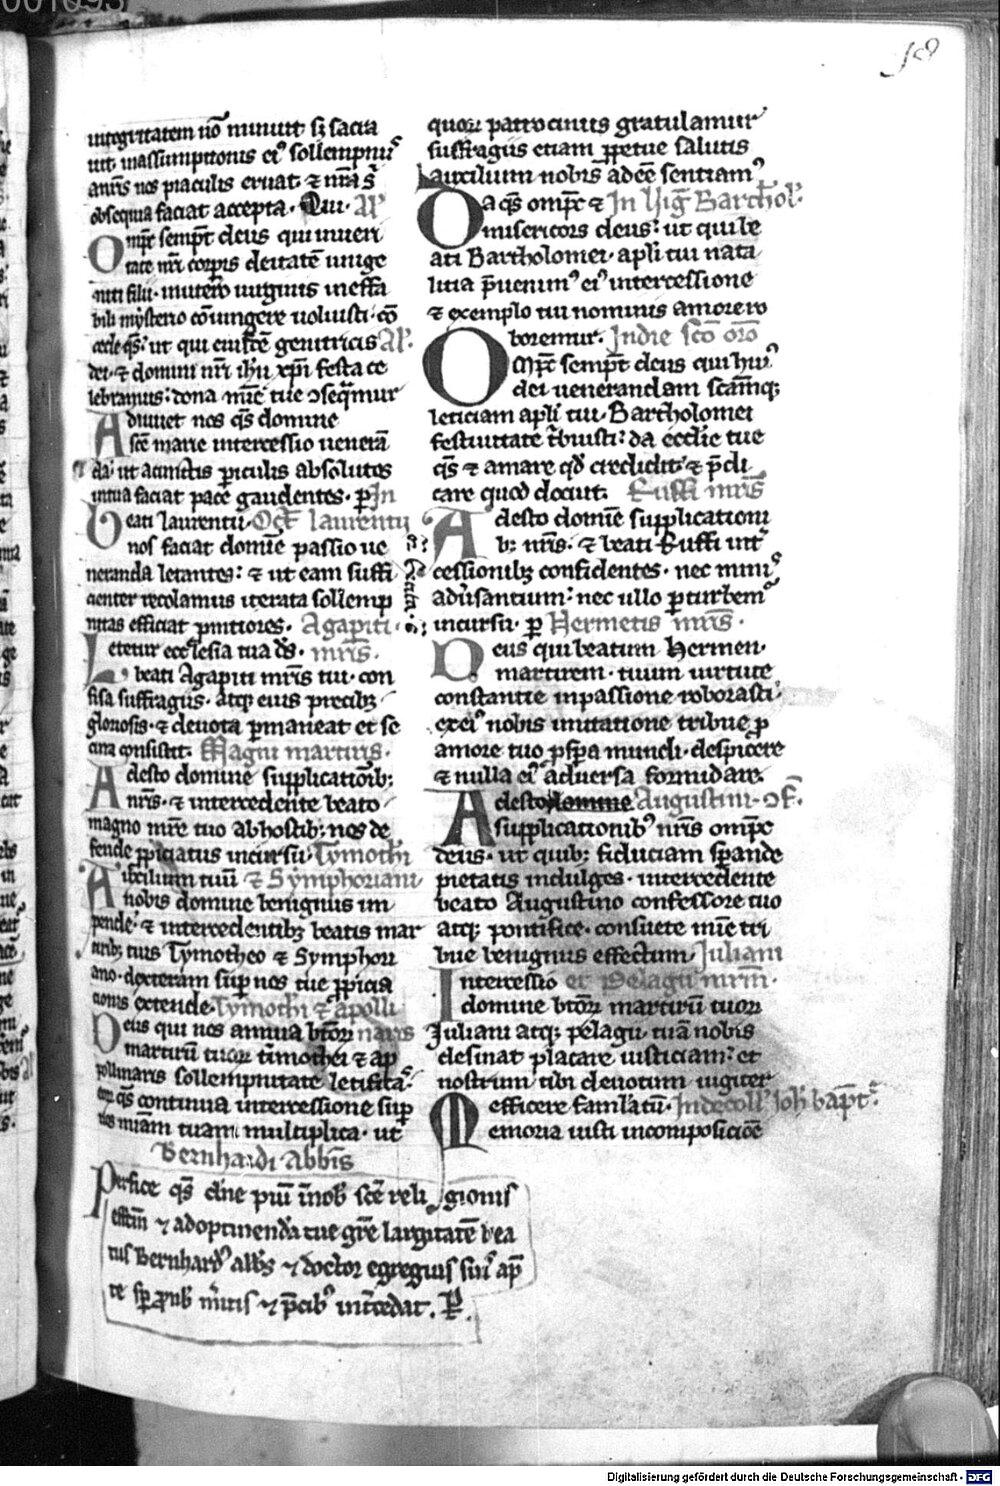 integritatem nō minuit sꝫ sacra
uit. inassumptionis eiꝰ sollempniis
annis nos piaculis eruat. ⁊ nr̄a s̄
obsequia faciat accepta. Qui. Alꝰ
Omp̄c semp̄t deus qui inueri
tate nr̄i corꝑis deitatē unige
niti filii. in utero uirginis ineffa
bili mysterio cōiungere uoluisti. cō
cede q̄s. ut qui eiusdē genitricis Al'.
dei. ⁊ domini nr̄i ih̄u xp̄i festa ce
lebramus. dona mīe tue ↄseq̄mur
Adiuuet nos q̄s domine
sc̄e marie intercessio uenerā
da. ut a cunctis ꝑiculis absolutos
in tua faciat pace gaudentes. ꝑ In
Beati laurentii. Oct̄ laurentii
nos faciat domīe passio ue
neranda letantes. ⁊ ut eam suffi
cienter recolamus iterata sollemp
nitas efficiat ꝓmtiores. Agapiti.
Letetur eccl̄esia tua d̄s. mr̄is.
beati Agapiti mr̄is tui. con
fisa suffragiis. atqꝫ eius precibꝫ
gloriosis. ⁊ deuota ꝑmaneat et se
cura consistat. Magni martiris.
Adesto domine supplicatiōibꝫ
nr̄is. ⁊ intercedente beato
magno mr̄e tuo ab hostibꝫ nos de
fende ꝓpiciatus incursu. Tymothi
Auxilium tuū ⁊ Symphoriani
nobis domine benignus im
pende. ⁊ intercedentibꝫ beatis mar
tiribꝫ tuis Tymotheo ⁊ Symphori
ano. dexteram suꝑ nos tue ꝓpicia
cionis extende. Tymothi ⁊ apolli
Deus qui nos annua bt̄orꝝ naris
martirū tuorꝝ timothei ⁊ ap
pollinaris sollempnitate letifica
q̄s continua intercessione suꝑ
nos mīam tuam multiplica. ut
Bernhardi abbis̄
Perfice q̄s dn̄e piū ī nob̄ sc̄e religionis
⁊ adoptinenda tue gr̄e largitatē bea
tus Bernhardꝰ abb̄s ⁊ doctor egregius
mitis ⁊ p̄cibꝰ int̄cedat. ꝑ.
quorꝝ patrociniis gratulamur
suffragiis etiam ꝑpetue salutis
auxilium nobis adēē sentiamꝰ
Da q̄s omp̄c ⁊ In Uiḡ Bartholꝰ.
misericors deus. ut qui be
ati Bartholomei. apl̄i tui nata
litia p̄uenimꝰ eiꝰ intercessione
⁊ exemplo tui nominis amore ro
boremur. In die sc̄o orō
Omp̄c semp̄t deus qui huiꝰ
diei uenerandam sc̄amqꝫ
leticiam apl̄i tui. Bartholomei
festiuitate t̄buisti. da eccl̄ie tue
q̄s ⁊ amare qd̄ credidit. ⁊ p̄di
care quod docuit. Ruffi mr̄is
Adesto domīe supplicationi
bꝫ nr̄is. ⁊ beati Ruffi int̄
cessionibꝫ confidentes. nec miniꝰ
adūsantium. nec ullo ꝑturbemꝰ
incursu. ꝑ Hermetis mr̄is.
Deus qui beatum Hermen.
martirem. tuum uirtute
constantie in passione roborasti.
ex eiꝰ nobis imitatione tribue ꝓ
amore tuo ꝓspera mundi. despicere
⁊ nulla eiꝰ aduersa formidare.
Adesto domine Augustini. ↄf.
supplicationibꝰ nr̄is omp̄c
deus. ut quibꝫ fiduciam sperande
pietatis indulges. intercedente
beato Augustino confessore tuo
atqꝫ pontifice. consuete mīe tri
bue benignus effectum. Juliani
Intercessio et Pelagii mr̄m.
domine bt̄orꝝ martirū tuorꝝ
Juliani atqꝫ pelagii. tuā nobis
desinat placare iusticiam. et
nostrum tibi deuotum iugiter
efficere famlatū. In decoll' Joh' bapt̄.
Memoria iusti incomposicione
Digitalisierung gefördert durch die Deutsche Forschungsgemeinschaft - DFG